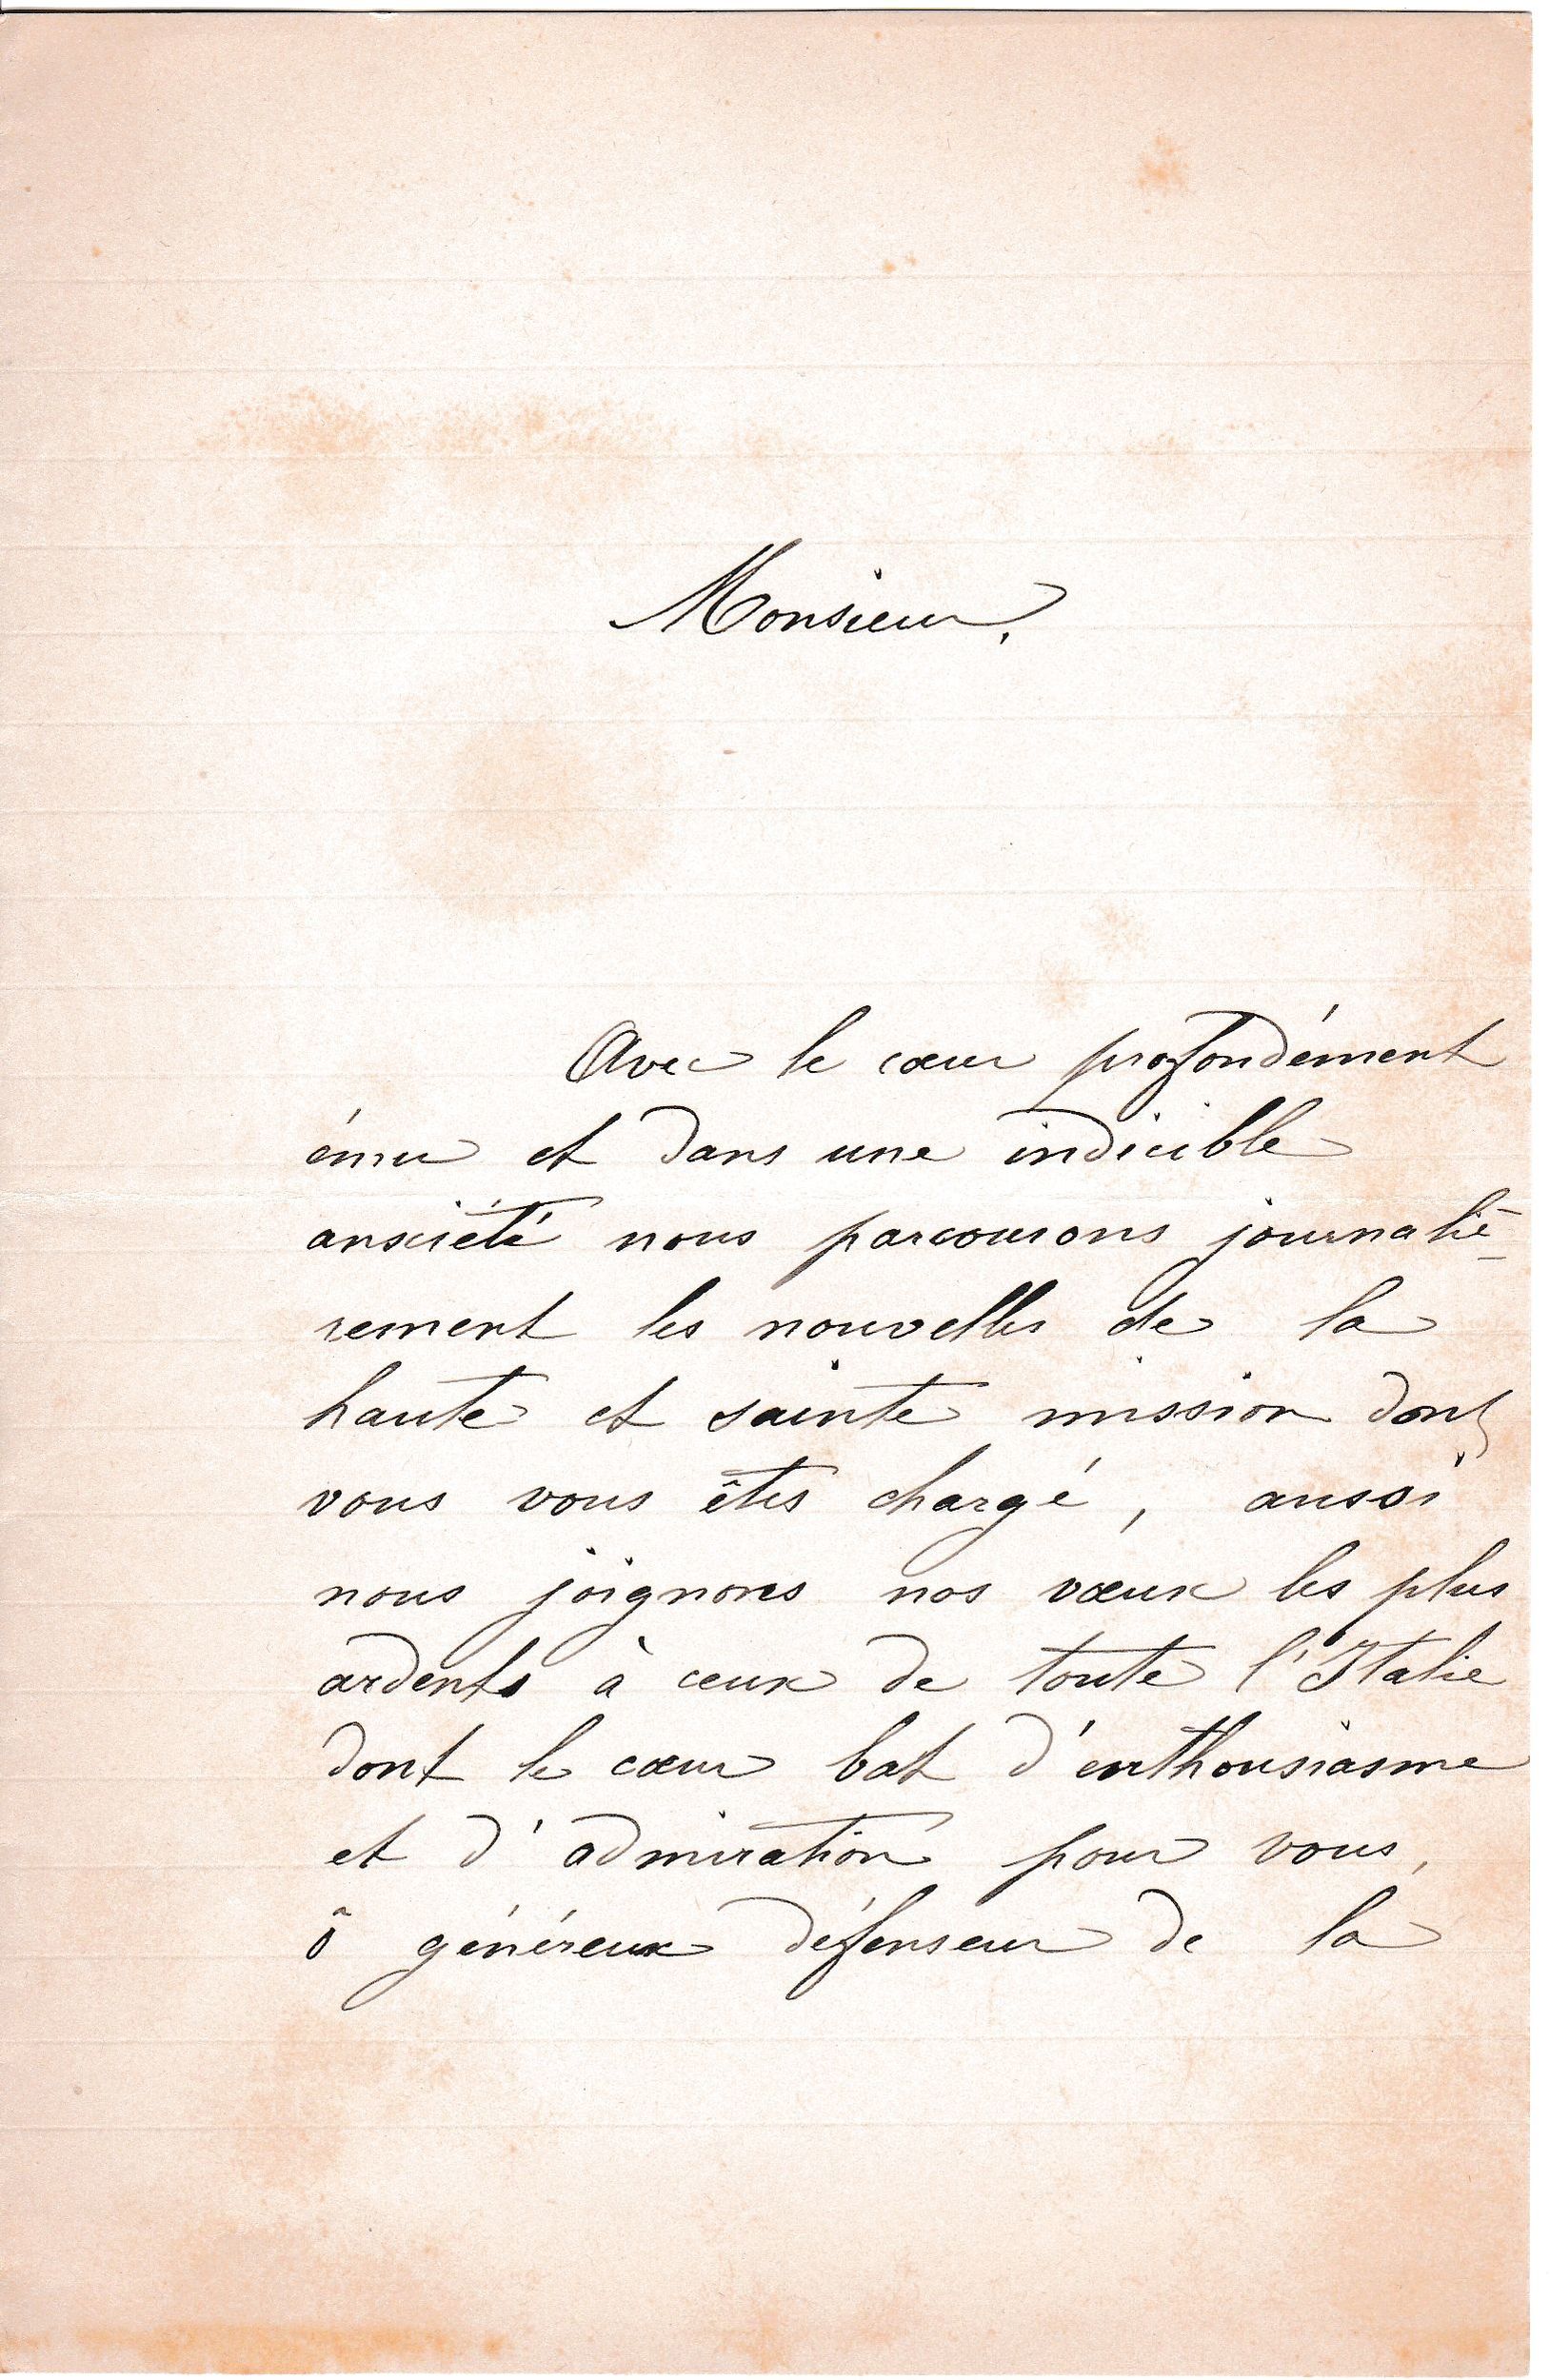 Monsieur,
Avec le cœur profondément
ému et dans une indicible
anxiété nous parcourons journaliè-
rement les nouvelles de la
haute et sainte mission dont
vous vous êtes chargé, aussi
nous joignons nos vœux les plus
ardents à ceux de toute l'Italie
dont le cœur bat d'enthousiasme
et d'admiration pour vous,
ô généreux défenseur de la